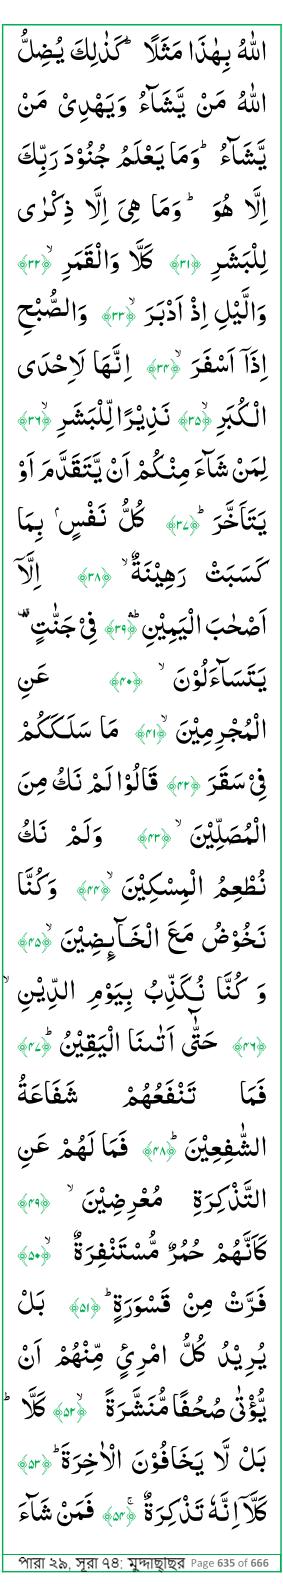 اللّٰهُ بِهٰذَا مَثَلًا ؕ كَذٰلِكَ يُضِلُّ
اللّٰهُ مَنْ يَّشَآءُ وَيَهْدِىْ مَنْ
يَّشَآءُ ؕ وَمَا يَعْلَمُ جُنُوْدَ رَبِّكَ
اِلَّا هُوَ ؕ وَمَا هِىَ اِلَّا ذِكْرٰى
لِلْبَشَرِ ﴿۳۱﴾ كَلَّا وَالْقَمَرِ ۙ ﴿۳۲﴾
وَالَّيْلِ اِذْ اَدْبَرَ ۙ ﴿۳۳﴾ وَالصُّبْحِ
اِذَآ اَسْفَرَ ۙ ﴿۳۴﴾ اِنَّهَا لَاِحْدَى
الْكُبَرِ ۙ ﴿۳۵﴾ نَذِيْرًا لِّلْبَشَرِ ۙ ﴿۳۶﴾
لِمَنْ شَآءَ مِنْكُمْ اَنْ يَّتَقَدَّمَ اَوْ
يَتَاَخَّرَ ؕ ﴿۳۷﴾ كُلُّ نَفْسٍۭ بِمَا
كَسَبَتْ رَهِيْنَةٌ ۙ ﴿۳۸﴾ اِلَّآ
اَصْحٰبَ الْيَمِيْنِ ۛؕ ﴿۳۹﴾ فِىْ جَنّٰتٍ ۛ
يَتَسَآءَلُوْنَ ۙ ﴿۴۰﴾ عَنِ
الْمُجْرِمِيْنَ ۙ ﴿۴۱﴾ مَا سَلَكَكُمْ
فِىْ سَقَرَ ﴿۴۲﴾ قَالُوْا لَمْ نَكُ مِنَ
الْمُصَلِّيْنَ ۙ ﴿۴۳﴾ وَلَمْ نَكُ
نُطْعِمُ الْمِسْكِيْنَ ۙ ﴿۴۴﴾ وَكُنَّا
نَخُوْضُ مَعَ الْخَآٮِٕضِيْنَ ۙ ﴿۴۵﴾
وَ كُنَّا نُكَذِّبُ بِيَوْمِ الدِّيْنِ ۙ
﴿۴۶﴾ حَتّٰٓى اَتٰٮنَا الْيَقِيْنُ ؕ ﴿۴۷﴾
فَمَا تَنْفَعُهُمْ شَفَاعَةُ
الشّٰفِعِيْنَ ؕ ﴿۴۸﴾ فَمَا لَهُمْ عَنِ
التَّذْكِرَةِ مُعْرِضِيْنَ ۙ ﴿۴۹﴾
كَاَنَّهُمْ حُمُرٌ مُّسْتَنْفِرَةٌ ۙ ﴿۵۰﴾
فَرَّتْ مِنْ قَسْوَرَةٍ ؕ ﴿۵۱﴾ بَلْ
يُرِيْدُ كُلُّ امْرِىٍٔ مِّنْهُمْ اَنْ
يُّؤْتٰى صُحُفًا مُّنَشَّرَةً ۙ ﴿۵۲﴾ كَلَّا ؕ
بَلْ لَّا يَخَافُوْنَ الْاٰخِرَةَ ؕ ﴿۵۳﴾
كَلَّاۤ اِنَّهٗ تَذْكِرَةٌ ۚ ﴿۵۴﴾ فَمَنْ شَآءَ
পারা ২৯, সূরা ৭৪: মুদ্দাছ্ছির Page 635 of 666